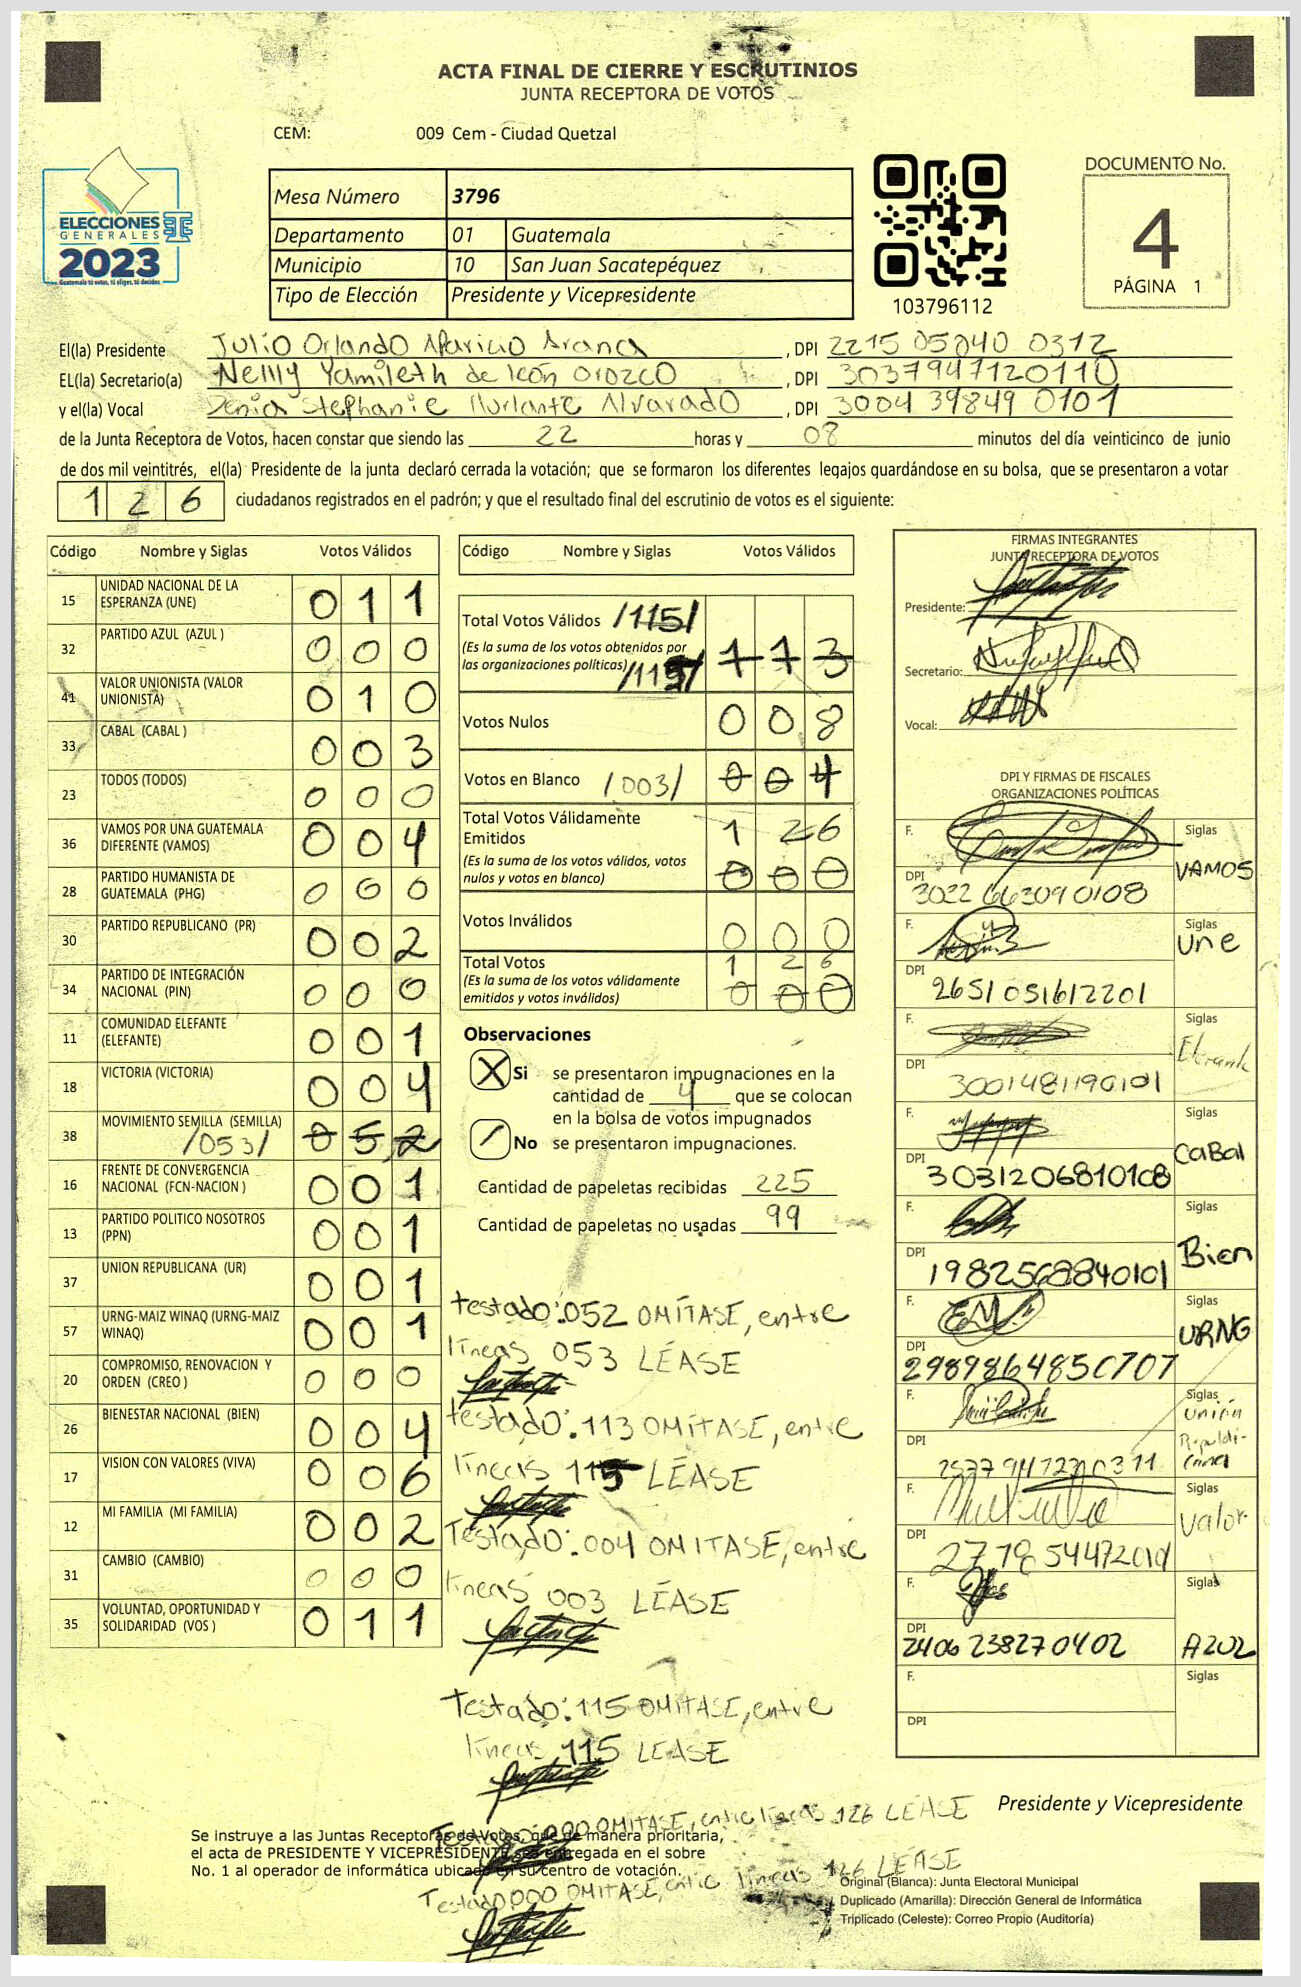 ACTA FINAL DE CIERRE Y ESCRUTINIOS
JUNTA RECEPTORA DE VOTOS
CEM: 009 Cem - Ciudad Quetzal
ELECCIONES
GENERALES
2023
Guatemala tú votas, tú eliges, tú decides
Mesa Número 3796
Departamento 01 Guatemala
Municipio 10 San Juan Sacatepéquez
Tipo de Elección Presidente y Vicepresidente
103796112
DOCUMENTO No.
4
PÁGINA 1
El(la) Presidente Julio Orlando Aparicio Arana , DPI 2215 05040 0312
EL(la) Secretario(a) Nelly Yamileth de león orozco , DPI 3037947120110
y el(la) Vocal Denia Stephanie Alvarado , DPI 3004 39849 0101
de la Junta Receptora de Votos, hacen constar que siendo las 22 horas y 08 minutos del día veinticinco de junio
de dos mil veintitrés, el(la) Presidente de la junta declaró cerrada la votación; que se formaron los diferentes legajos guardándose en su bolsa, que se presentaron a votar
126 ciudadanos registrados en el padrón; y que el resultado final del escrutinio de votos es el siguiente:
Código Nombre y Siglas Votos Válidos
15 UNIDAD NACIONAL DE LA ESPERANZA (UNE) 011
32 PARTIDO AZUL (AZUL ) 000
41 VALOR UNIONISTA (VALOR UNIONISTA) 010
33 CABAL (CABAL ) 003
23 TODOS (TODOS) 000
36 VAMOS POR UNA GUATEMALA DIFERENTE (VAMOS) 004
28 PARTIDO HUMANISTA DE GUATEMALA (PHG) 000
30 PARTIDO REPUBLICANO (PR) 002
34 PARTIDO DE INTEGRACIÓN NACIONAL (PIN) 000
11 COMUNIDAD ELEFANTE (ELEFANTE) 001
18 VICTORIA (VICTORIA) 004
38 MOVIMIENTO SEMILLA (SEMILLA) /053/ 052
16 FRENTE DE CONVERGENCIA NACIONAL (FCN-NACION ) 001
13 PARTIDO POLITICO NOSOTROS (PPN) 001
37 UNION REPUBLICANA (UR) 001
57 URNG-MAIZ WINAQ (URNG-MAIZ WINAQ) 001
20 COMPROMISO, RENOVACION Y ORDEN (CREO ) 000
26 BIENESTAR NACIONAL (BIEN) 004
17 VISION CON VALORES (VIVA) 006
12 MI FAMILIA (MI FAMILIA) 002
31 CAMBIO (CAMBIO) 000
35 VOLUNTAD, OPORTUNIDAD Y SOLIDARIDAD (VOS ) 011
Código Nombre y Siglas Votos Válidos
Total Votos Válidos /115/
(Es la suma de los votos obtenidos por
las organizaciones políticas) /115/ 113
Votos Nulos 008
Votos en Blanco /003/ 004
Total Votos Válidamente
Emitidos 126
(Es la suma de los votos válidos, votos
nulos y votos en blanco) 000
Votos Inválidos 000
Total Votos 126
(Es la suma de los votos válidamente
emitidos y votos inválidos) 000
Observaciones
X Si se presentaron impugnaciones en la
cantidad de 4 que se colocan
en la bolsa de votos impugnados
/ No se presentaron impugnaciones.
Cantidad de papeletas recibidas 225
Cantidad de papeletas no usadas 99
testado: 052 OMÍTASE, entre
líneas 053 LÉASE
testado: 113 OMÍTASE, entre
líneas 115 LÉASE
Testado: 004 OMITASE, entre
líneas 003 LÉASE
Testado: 115 OMITASE, entre
lineas 115 LEASE
Testado: 000 OMITASE, entre lineas 126 LEASE
Testado 000 OMITASE, entre lineas 126 LEASE
FIRMAS INTEGRANTES
JUNTA RECEPTORA DE VOTOS
Presidente:
Secretario:
Vocal:
DPI Y FIRMAS DE FISCALES
ORGANIZACIONES POLÍTICAS
F. Siglas VAMOS
DPI 3022 663090108
F. Siglas une
DPI 2651051612201
F. Siglas
DPI 3001481190101
F. Siglas CaBal
DPI 3031206810108
F. Siglas Bien
DPI 1982568840101
F. Siglas URNG
DPI 2989864850707
F. Siglas unión
DPI
F. Siglas Valor
DPI
F. Siglas AZUL
DPI 2406 238270402
F. Siglas
DPI
Presidente y Vicepresidente
Se instruye a las Juntas Receptoras de Votos, que de manera prioritaria,
el acta de PRESIDENTE Y VICEPRESIDENTE sea entregada en el sobre
No. 1 al operador de informática ubicado en su centro de votación.
Original (Blanca): Junta Electoral Municipal
Duplicado (Amarilla): Dirección General de Informática
Triplicado (Celeste): Correo Propio (Auditoría)